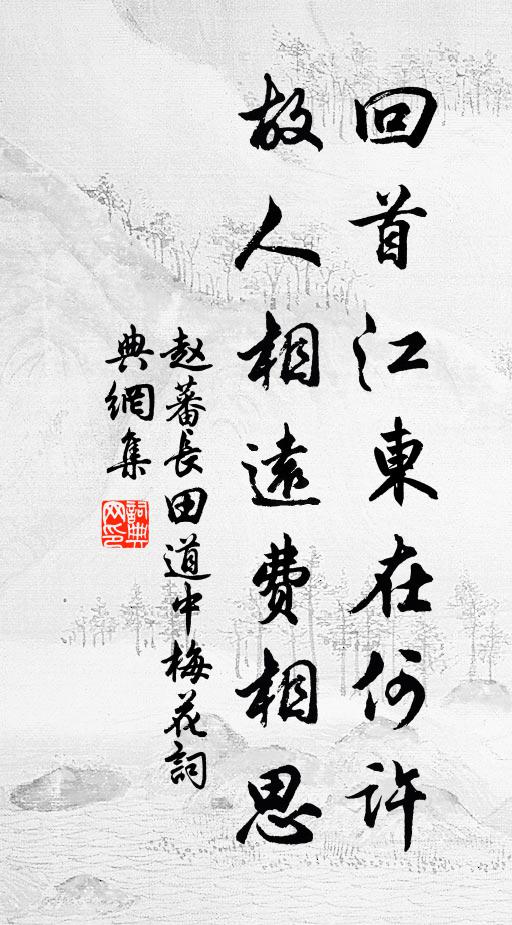 回首江東在何许
故人相遠費相思
赵蕃長田道中梅花詞
典網集
詞典
网印